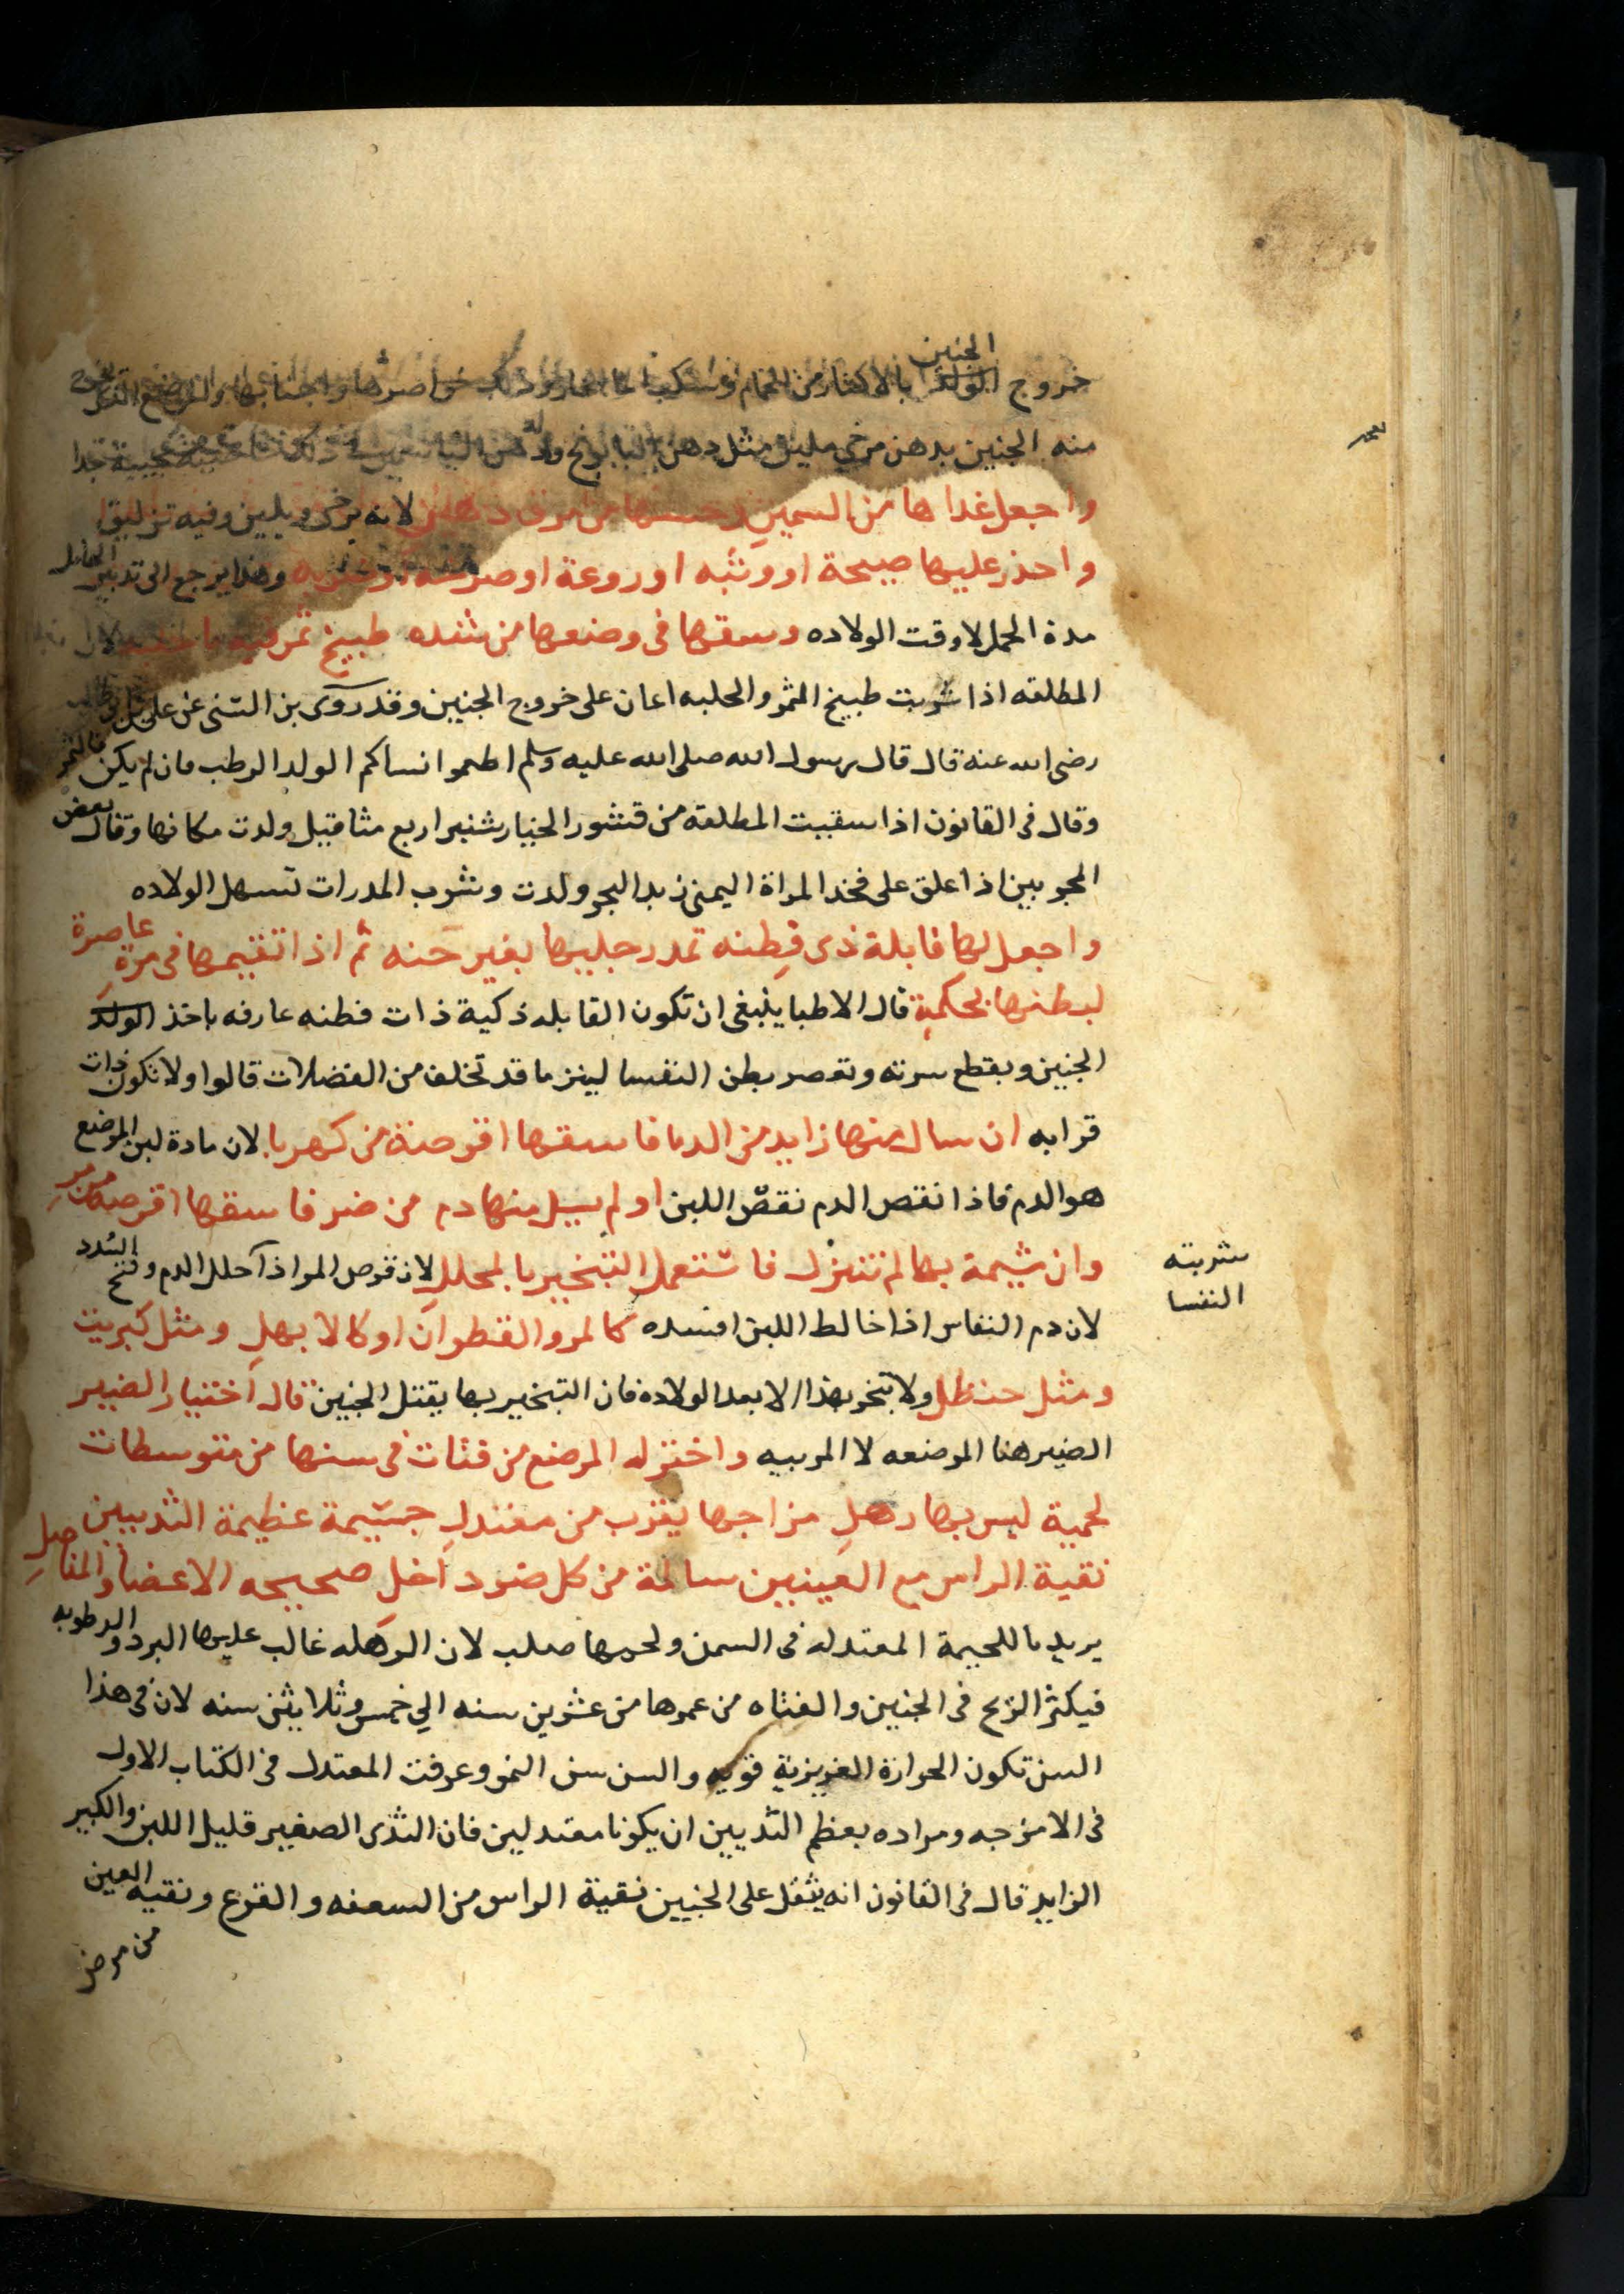 الجنين
خروج الولد بالاكثار من الحمام وسكب الما الحار ودلك خواصرها
منه الجنين بدهن مرخي ملين مثل دهن البابونج ودهن
واجعل غداها من السمين لانه يرخى ويلين وفيه تزليق
واحذر عليها صيحة او وثبه او روعة او صرخه او ضربه وهذا يرجع الى تدبير الحامل
مدة الحمل لا وقت الولاده وسقها فى وضعها من شده طبيخ تمر فيه ما حلبه لان
المطلقه اذا شربت طبيخ التمر والحلبه اعان على خروج الجنين وقد روى بن السنى عن على بن ابى طالب
رضى الله عنه قال قال رسول الله صلى الله عليه وسلم اطعموا نساكم الولد الرطب فان لم يكن فالتمر
وقال فى القانون اذا سقيت المطلقه من قشور الخيار شنبر اربع مثاقيل ولدت مكانها وقال بعض
المجربين اذا علق على فخذ المراة اليمنى زبد البحر ولدت وشرب المدرات تسهل الولاده
واجعل لها قابلة ذى فطنه تمد رجليها بغير حنه ثم اذا تقيمها فى مرة عاصرة
لبطنها بحكمة قال الاطبا ينبغى ان تكون القابله ذكية ذات فطنه عارفه باخذ الولد
الجنين وبقطع سرته وتعصر بطن النفسا لينز ما قد تخلف من الفضلات قالوا ولا تكون ذات
قرابه ان سال منها زايد من الدما فاسقها اقرصة من كهربا لان مادة لبن الموضع
هو الدم فاذا نقص الدم نقص اللبن او لم يسيل منها دم من ضر فاسقها اقرصة من مر
وان شيمة بها لم تنزل فاستعمل التبخير بالمحلل لان قرص المر اذا حلل الدم وفتح السدد
شربته
النفسا
لان دم النفاس اذا خالط اللبن افسده كالمر والقطران او كالابهل ومثل كبريت
ومثل حنظل ولا تبخر بهذا الا بعد الولاده فان التبخير بها يقتل الجنين قال اختيار الضير
الضير هنا الموضعه لا المربيه واختر له المرضع من فتات فى سنها من متوسطات
لحمية ليس بها رهل مزاجها يقرب من معتدل جسيمة عظيمة الثديين
نقية الراس مع العينين سالمة من كل ضر داخل صحيحه الاعضا والمفاصل
يريد باللحيمة المعتدله فى السمن ولحمها صلب لان الرهله غالب عليها البرد والرطوبه
فيكثر الريح فى الجنين والفتاه من عمرها من عشرين سنه الي خمس وثلاثين سنه لان فى هذا
السن تكون الحرارة الغريزية قويه والسن سن النمو وعرفت المعتدل فى الكتاب الاول
فى الامزجه ومراده بعظم الثديين ان يكونا معتدلين فان الثدى الصغير قليل اللبن والكبير
الزايد قال فى القانون انه يثقل على الجنين نقية الراس من السعفه والقرع ونقية العين
من مرض